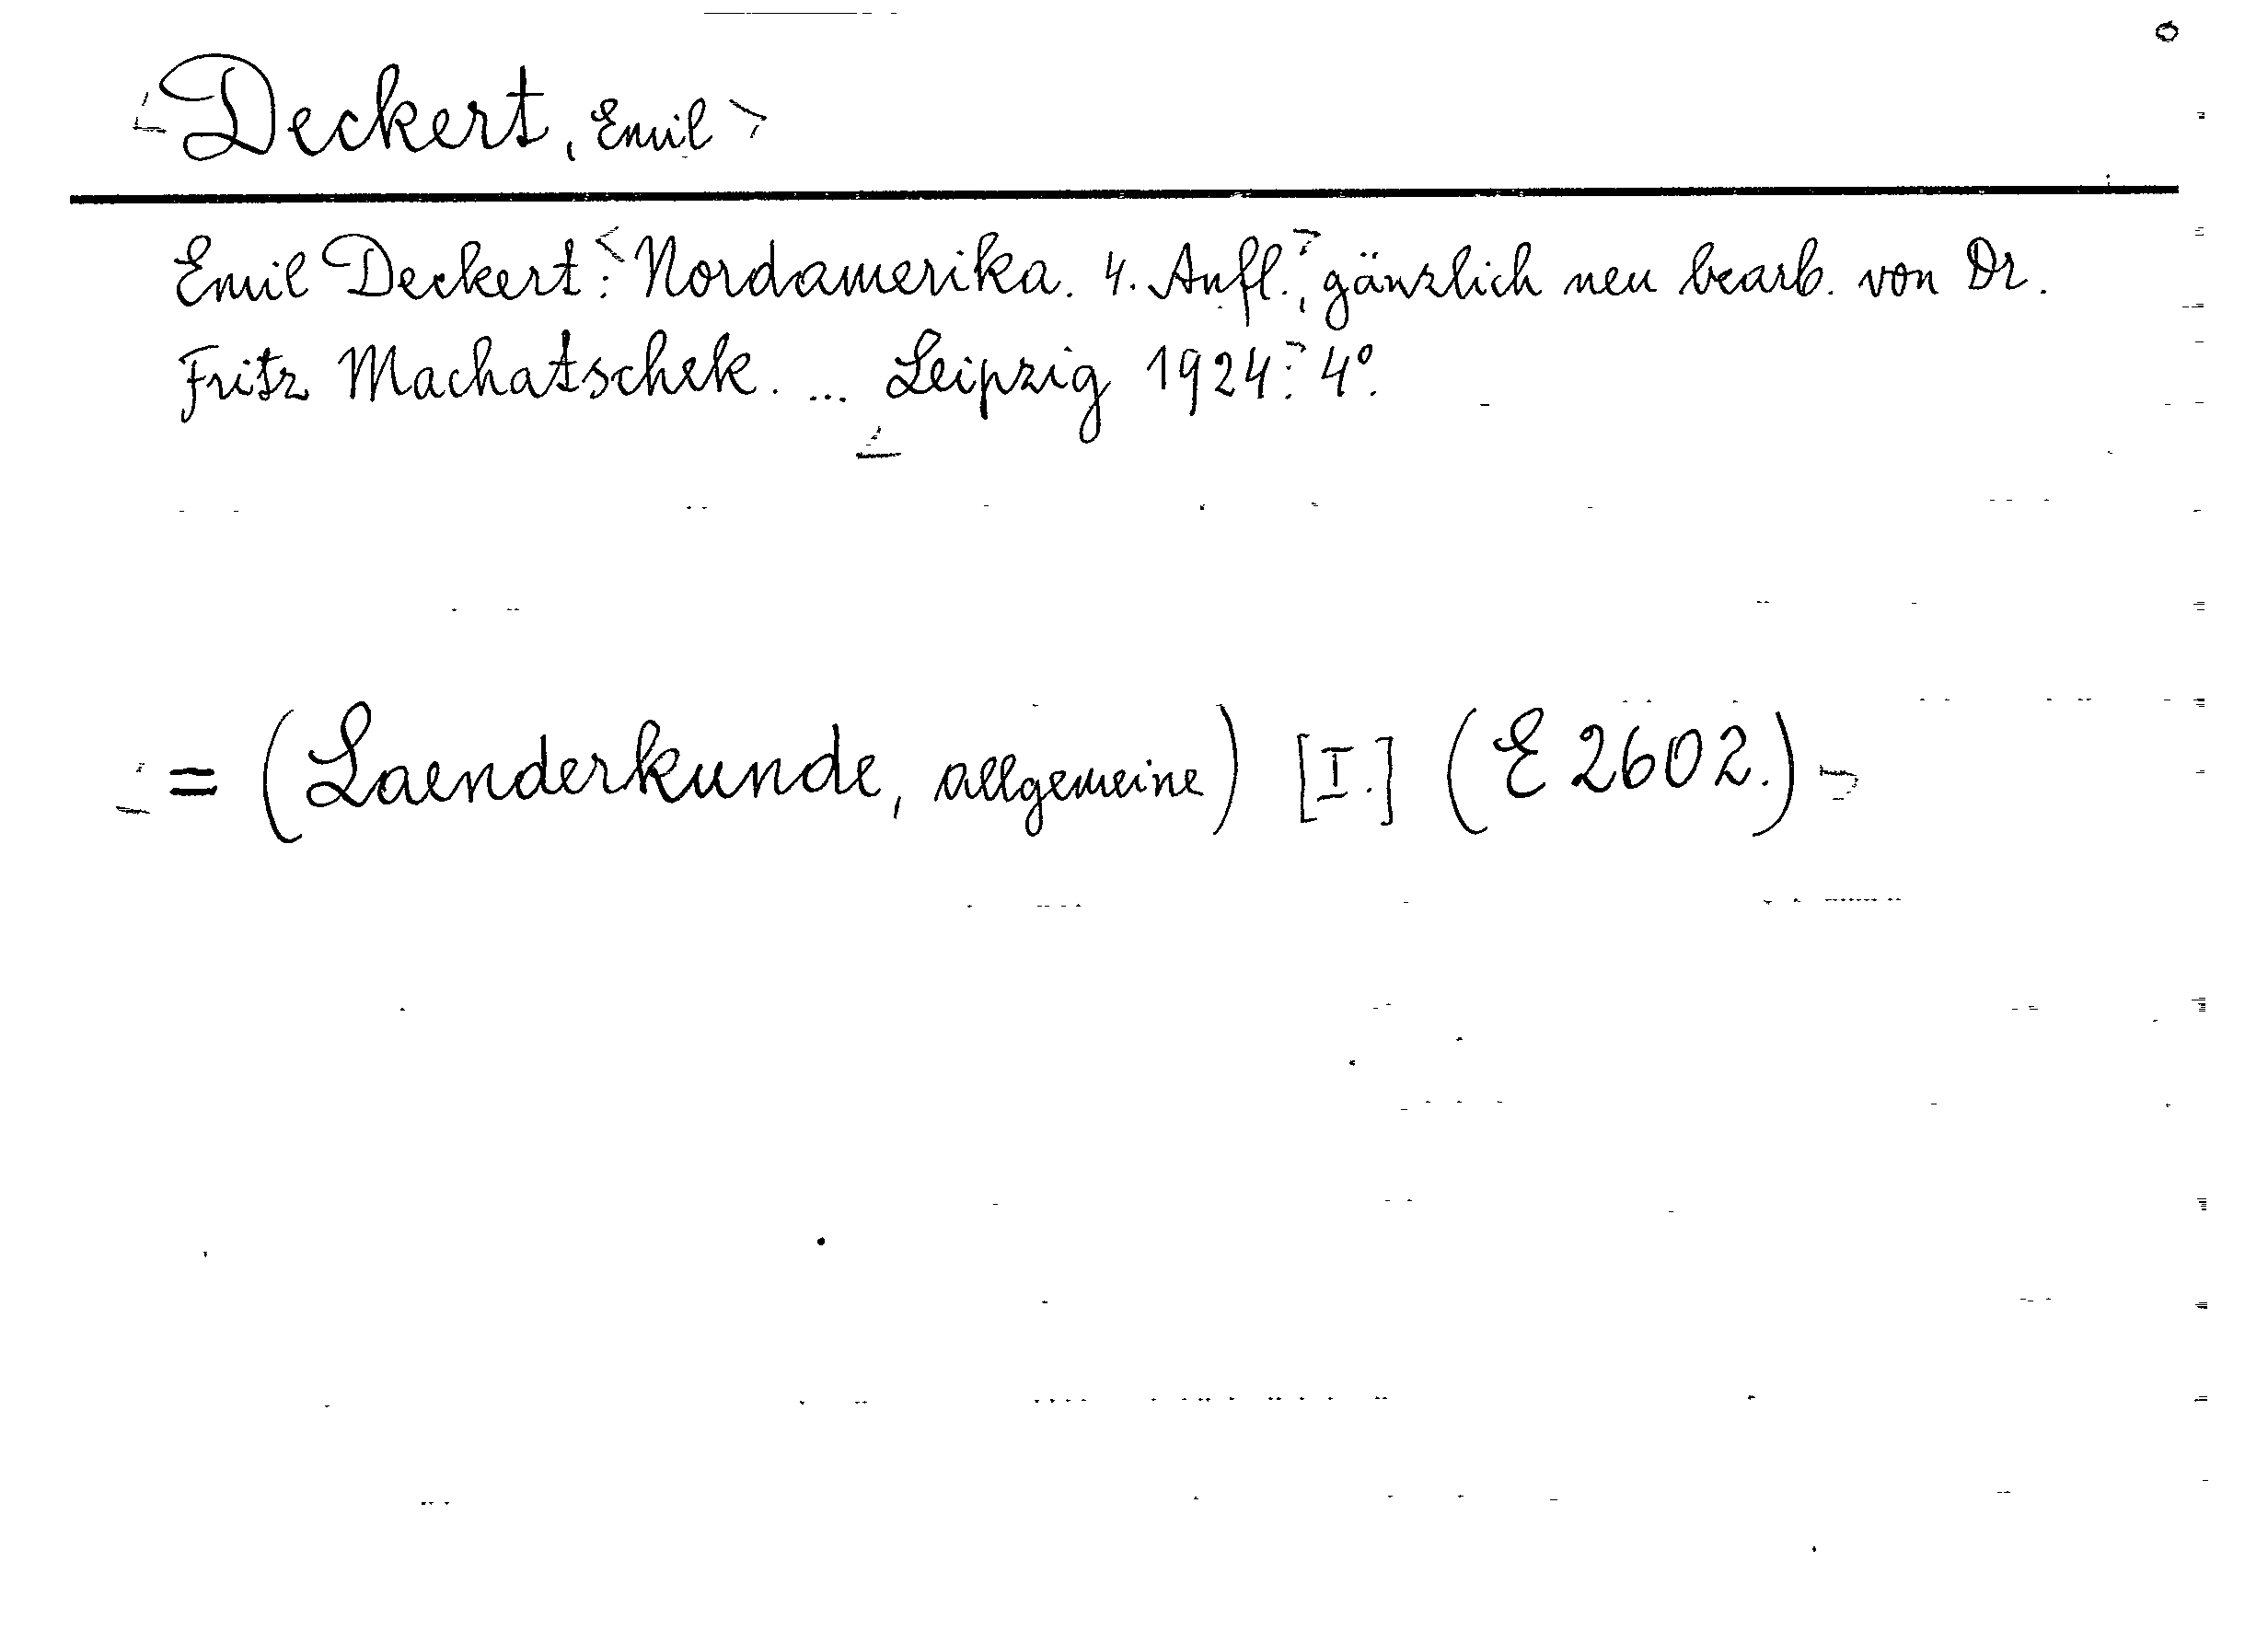 Deckert, Emil
Emil Deckert: Nordamerika. 4. Aufl., gänzlich neu bearb. von Dr.
Fritz Machatschek. ... Leipzig 1924. 4°.
= (Laenderkunde, allgemeine) [I.] (E 2602.)